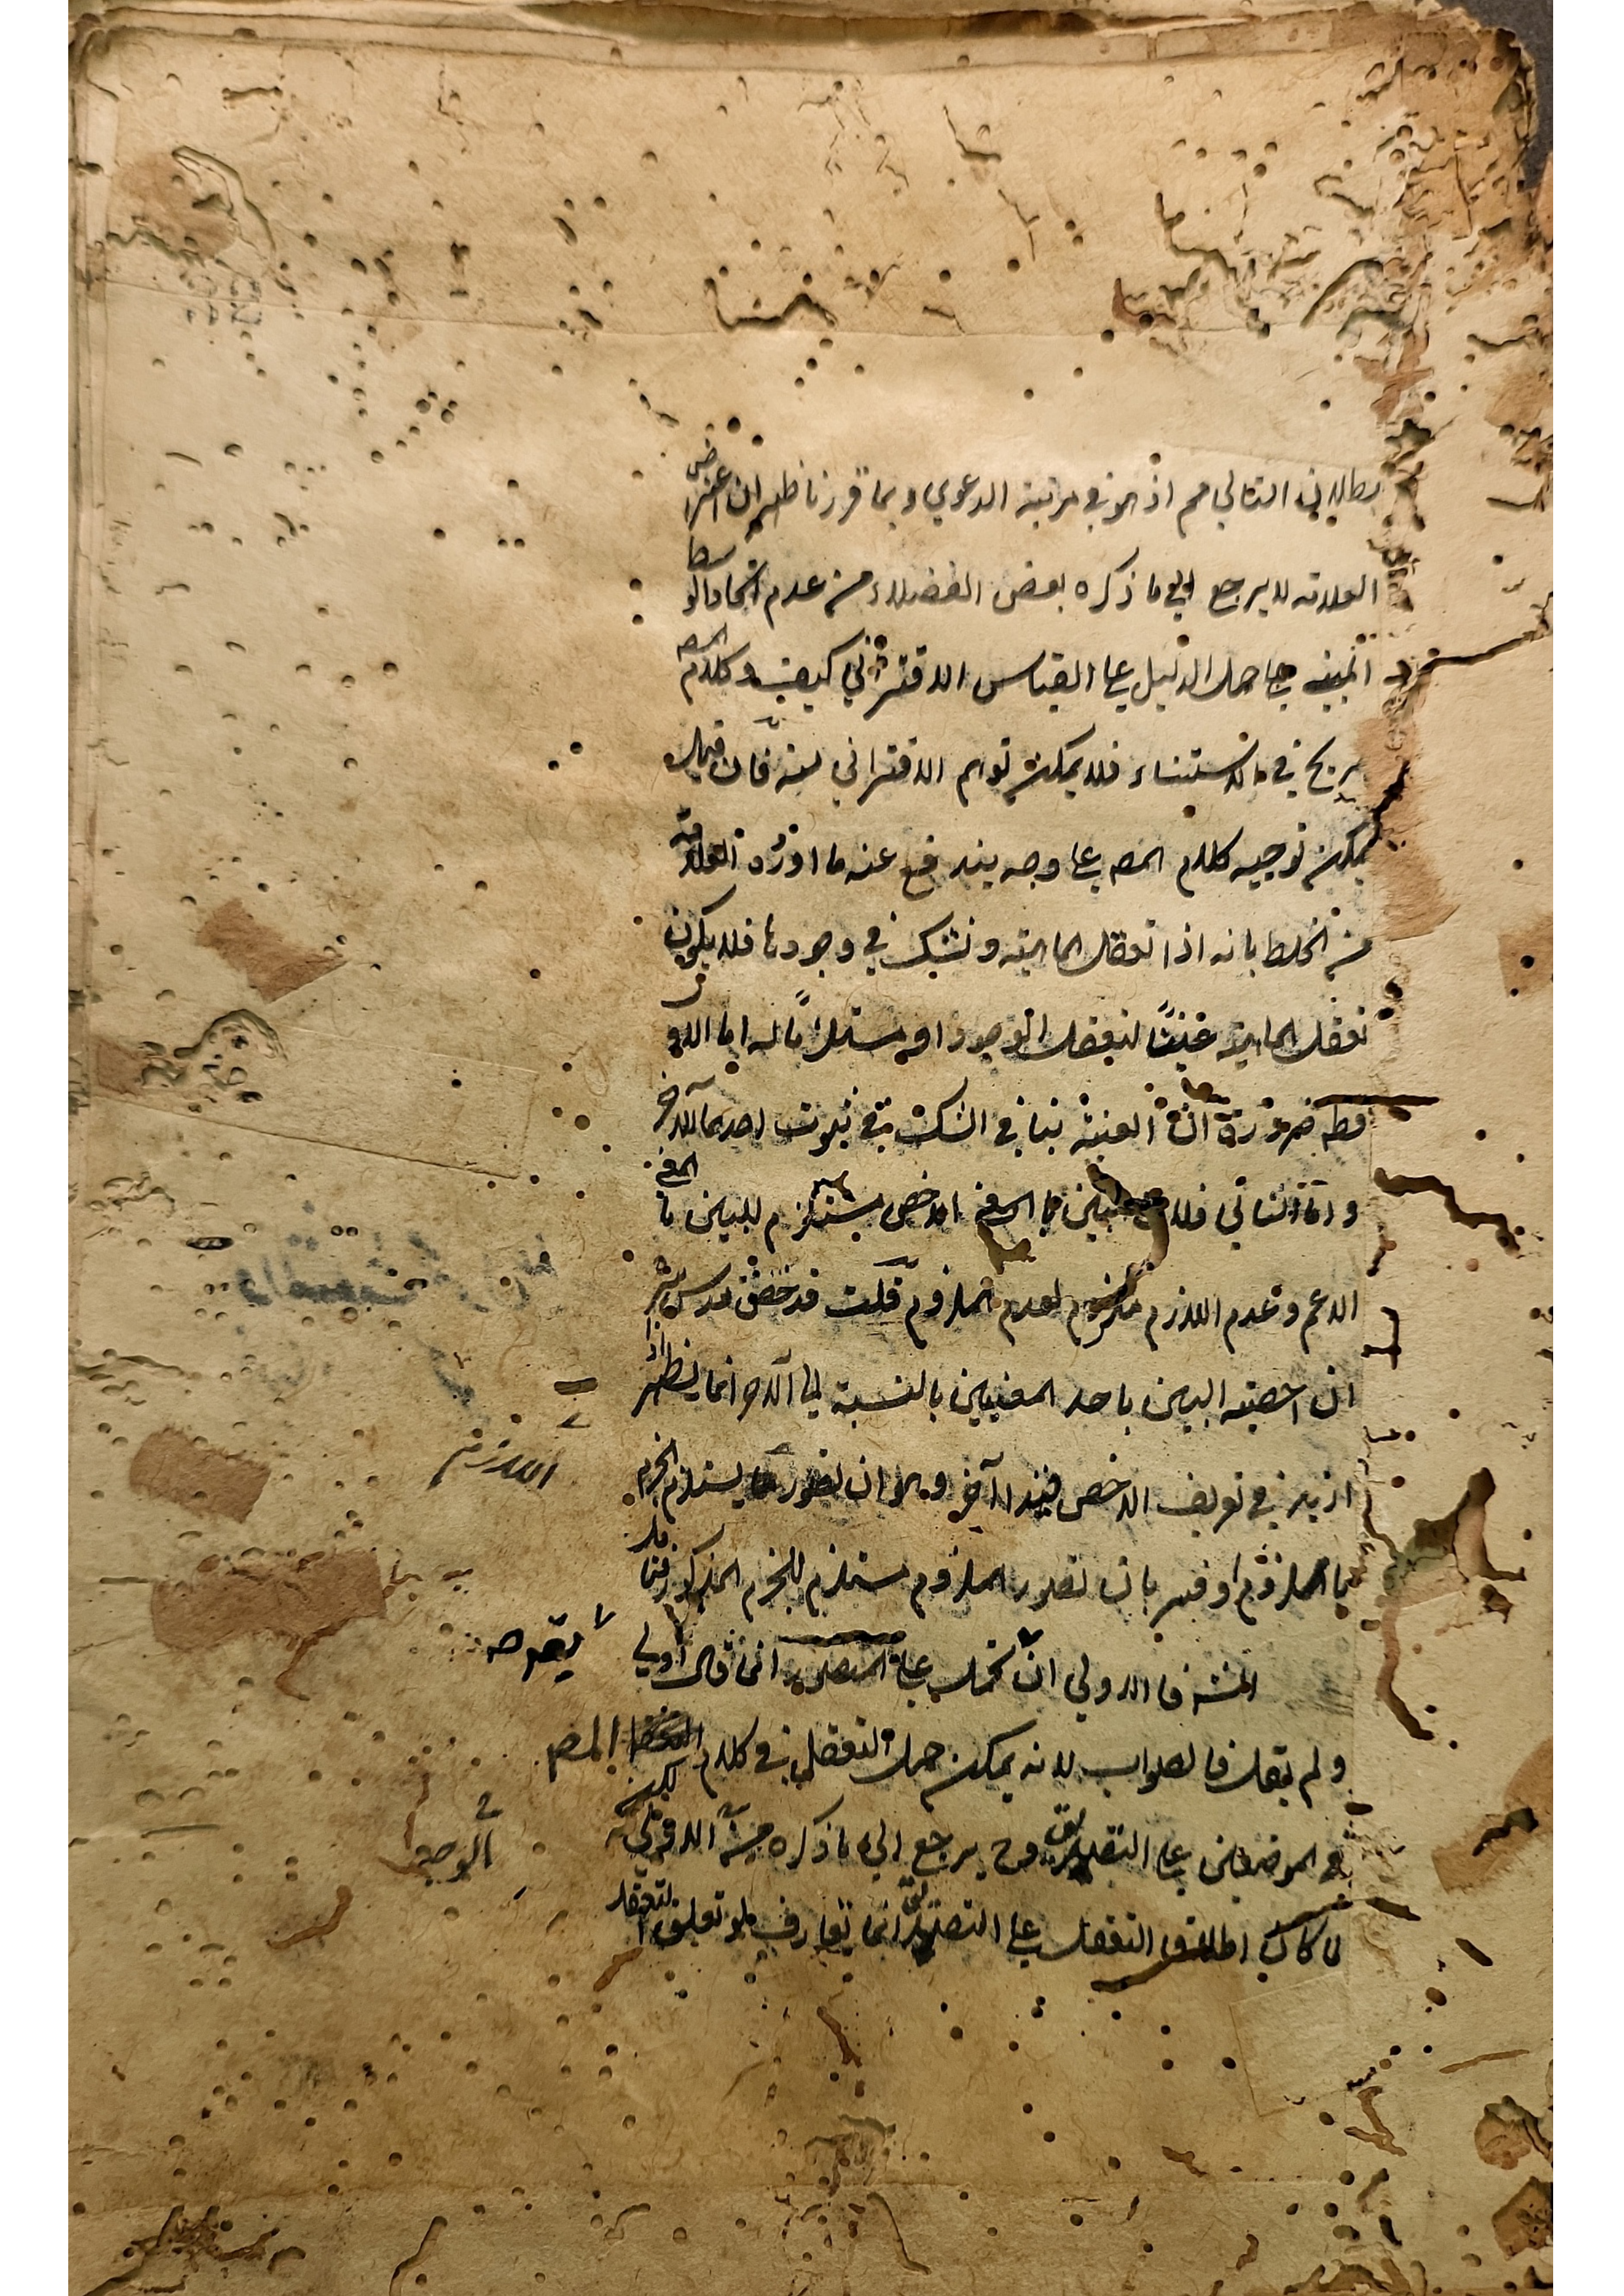 بطلان التالي مم اذ هو في مرتبة الدعوي وبما قررنا ظهر ان اعتراض
العلامة لا يرجع الي ما ذكره بعض الفضلاء من عدم اتحاد الوسط
حمل الدليل علي القياس الاقتراني كيف وكلام المصه
صريح في الاستثناء فلا يمكن توهم الاقتراني منه فان قيل
يمكن توجيه كلام المصه علي وجه يندفع عنه ما اورده العلامة
من الخلط بانه اذا تعقل الماهية ونشك في وجودها فلا يكون
تعقل الماهية عينا لتعقل الوجود او مستلزما له اما الاول
فظه ضرورة ان العينية ينافي الشك في ثبوت احدهما للاخر
واما الثاني فلان البين بالمعني الاخص مستلزم للبين بالمعني
الاعم وعدم اللازم ملزوم لعدم الملزوم قلت قد حقق قدس سره
ان اخصية البين باحد المعنيين بالنسبة الي الاخر انما يظهر اذا
ازيد في تعريف الاخص قيدا آخر وهو ان تصور يستلزم الجزم
اللازم
باللزوم او فسر بان تصور الملزوم مستلزم للجزم المذكور فتامل
المشه فالاولي ان تحمل علي التصديق انما قال اولي
يتعرضه
ولم يقل فالصواب لانه يمكن حمل التعقل في كلام المصه
في الموضعين علي التصديق وح يرجع الي ما ذكره من الاولي لكنه
الوجه
لما كان اطلاق التعقل علي التصديق انما يتعارف لو تعلق التعقل